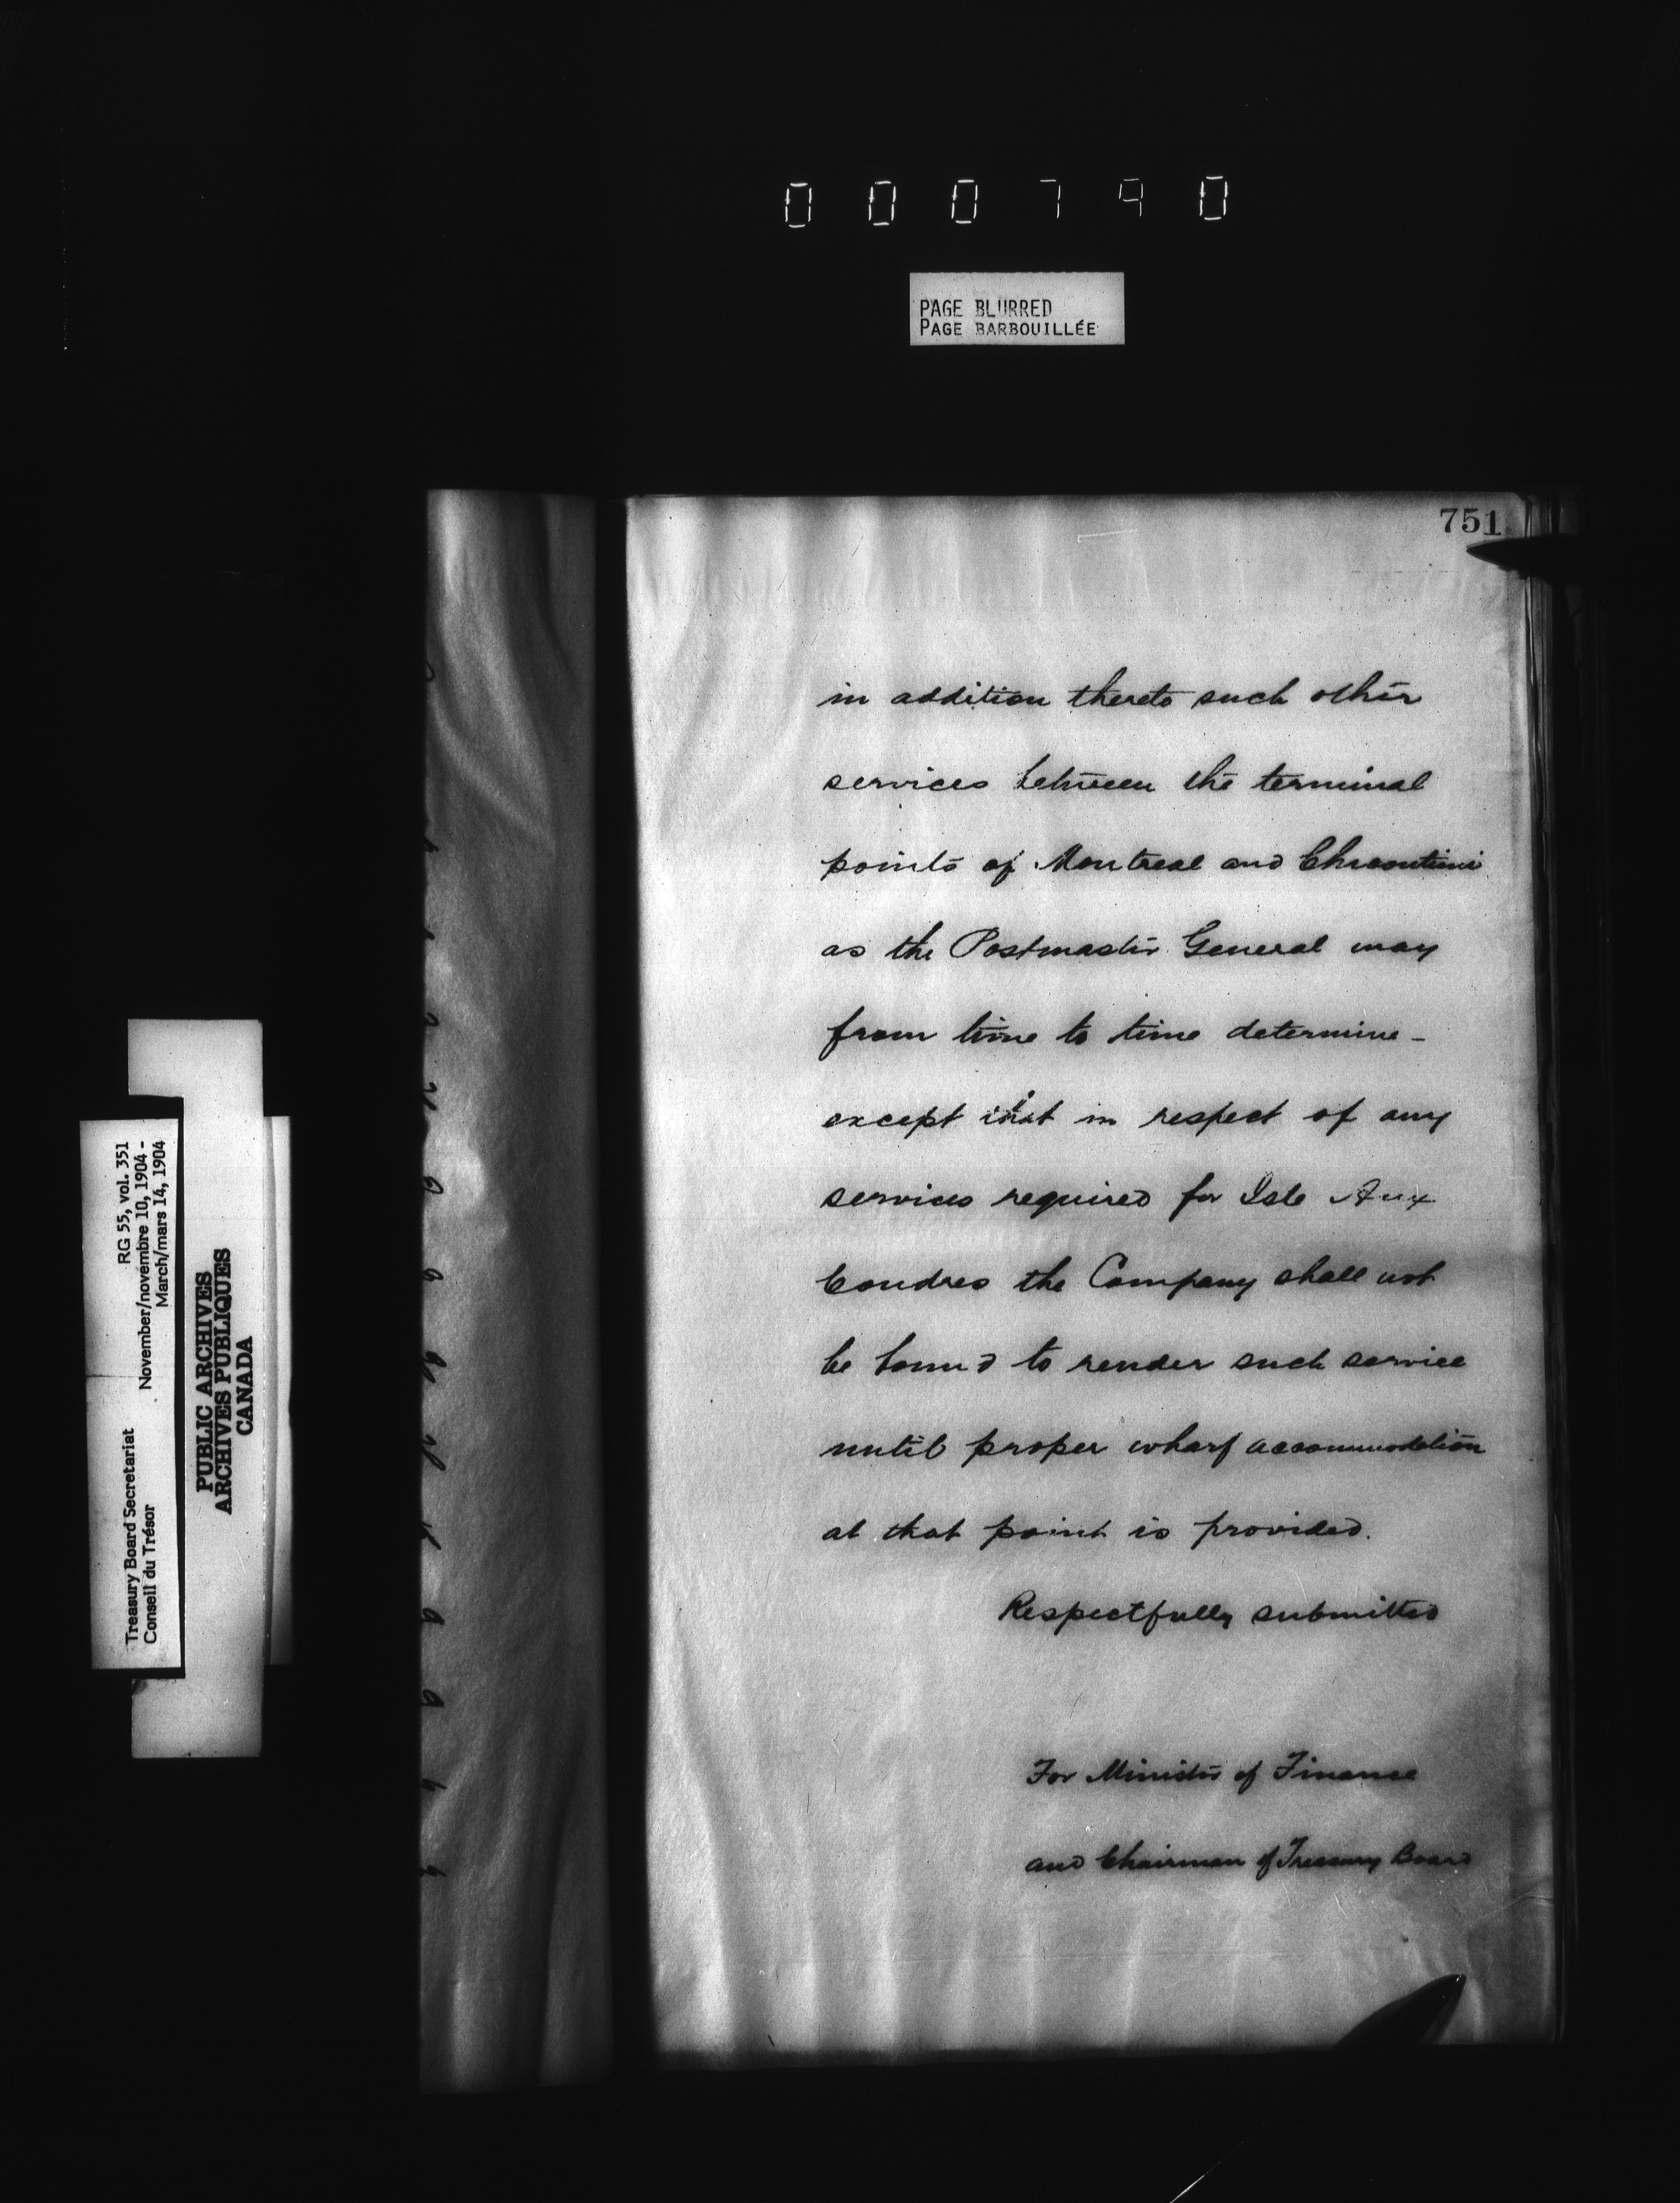 000790
PAGE BLURRED
PAGE BARBOUILLÉE
751
in addition thereto such other
services between the terminal
points of Montreal and Chicoutimi
as the Postmaster General may
from time to time determine -
except that in respect of any
services required for Isle Aux
Coudres the Company shall not
be bound to render such service
until proper wharf accommodation
at that point is provided.
Respectfully submitted
For Minister of Finance
and Chairman of Treasury Board
Treasury Board Secretariat RG 55, vol. 351
Conseil du Trésor November/novembre 10, 1904 -
March/mars 14, 1904
PUBLIC ARCHIVES
ARCHIVES PUBLIQUES
CANADA